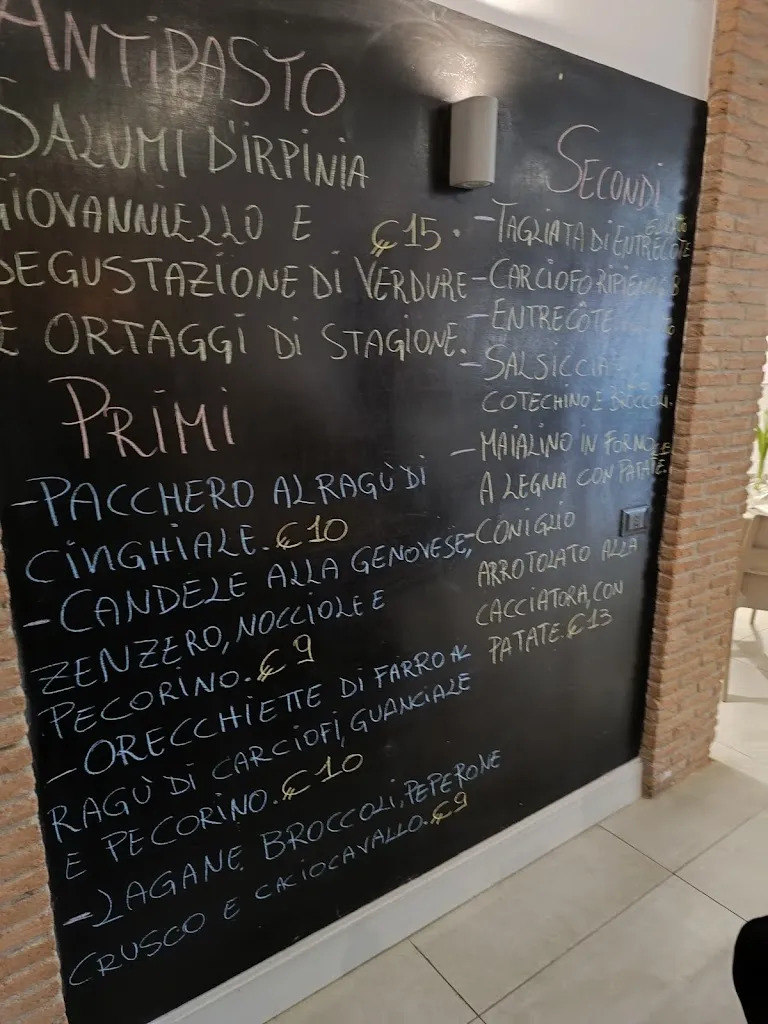 ANTIPASTO
SALUMI D'IRPINIA
GIOVANNIELLO E €15.
DEGUSTAZIONE DI VERDURE
E ORTAGGI DI STAGIONE.
PRIMI
-PACCHERO AL RAGÙ DI
CINGHIALE. €10
-CANDELE ALLA GENOVESE,
ZENZERO, NOCCIOLE E
PECORINO. €9
-ORECCHIETTE DI FARRO AL
RAGÙ DI CARCIOFI, GUANCIALE
E PECORINO. €10
-LAGANE BROCCOLI, PEPERONE
CRUSCO E CACIOCAVALLO. €9
SECONDI
-TAGLIATA DI ENTRECÔTE
-CARCIOFO RIPIENO €8
-ENTRECÔTE
-SALSICCIA
COTECHINO E BROCCOLI.
-MAIALINO IN FORNO
A LEGNA CON PATATE.
-CONIGLIO
ARROTOLATO ALLA
CACCIATORA, CON
PATATE. €13